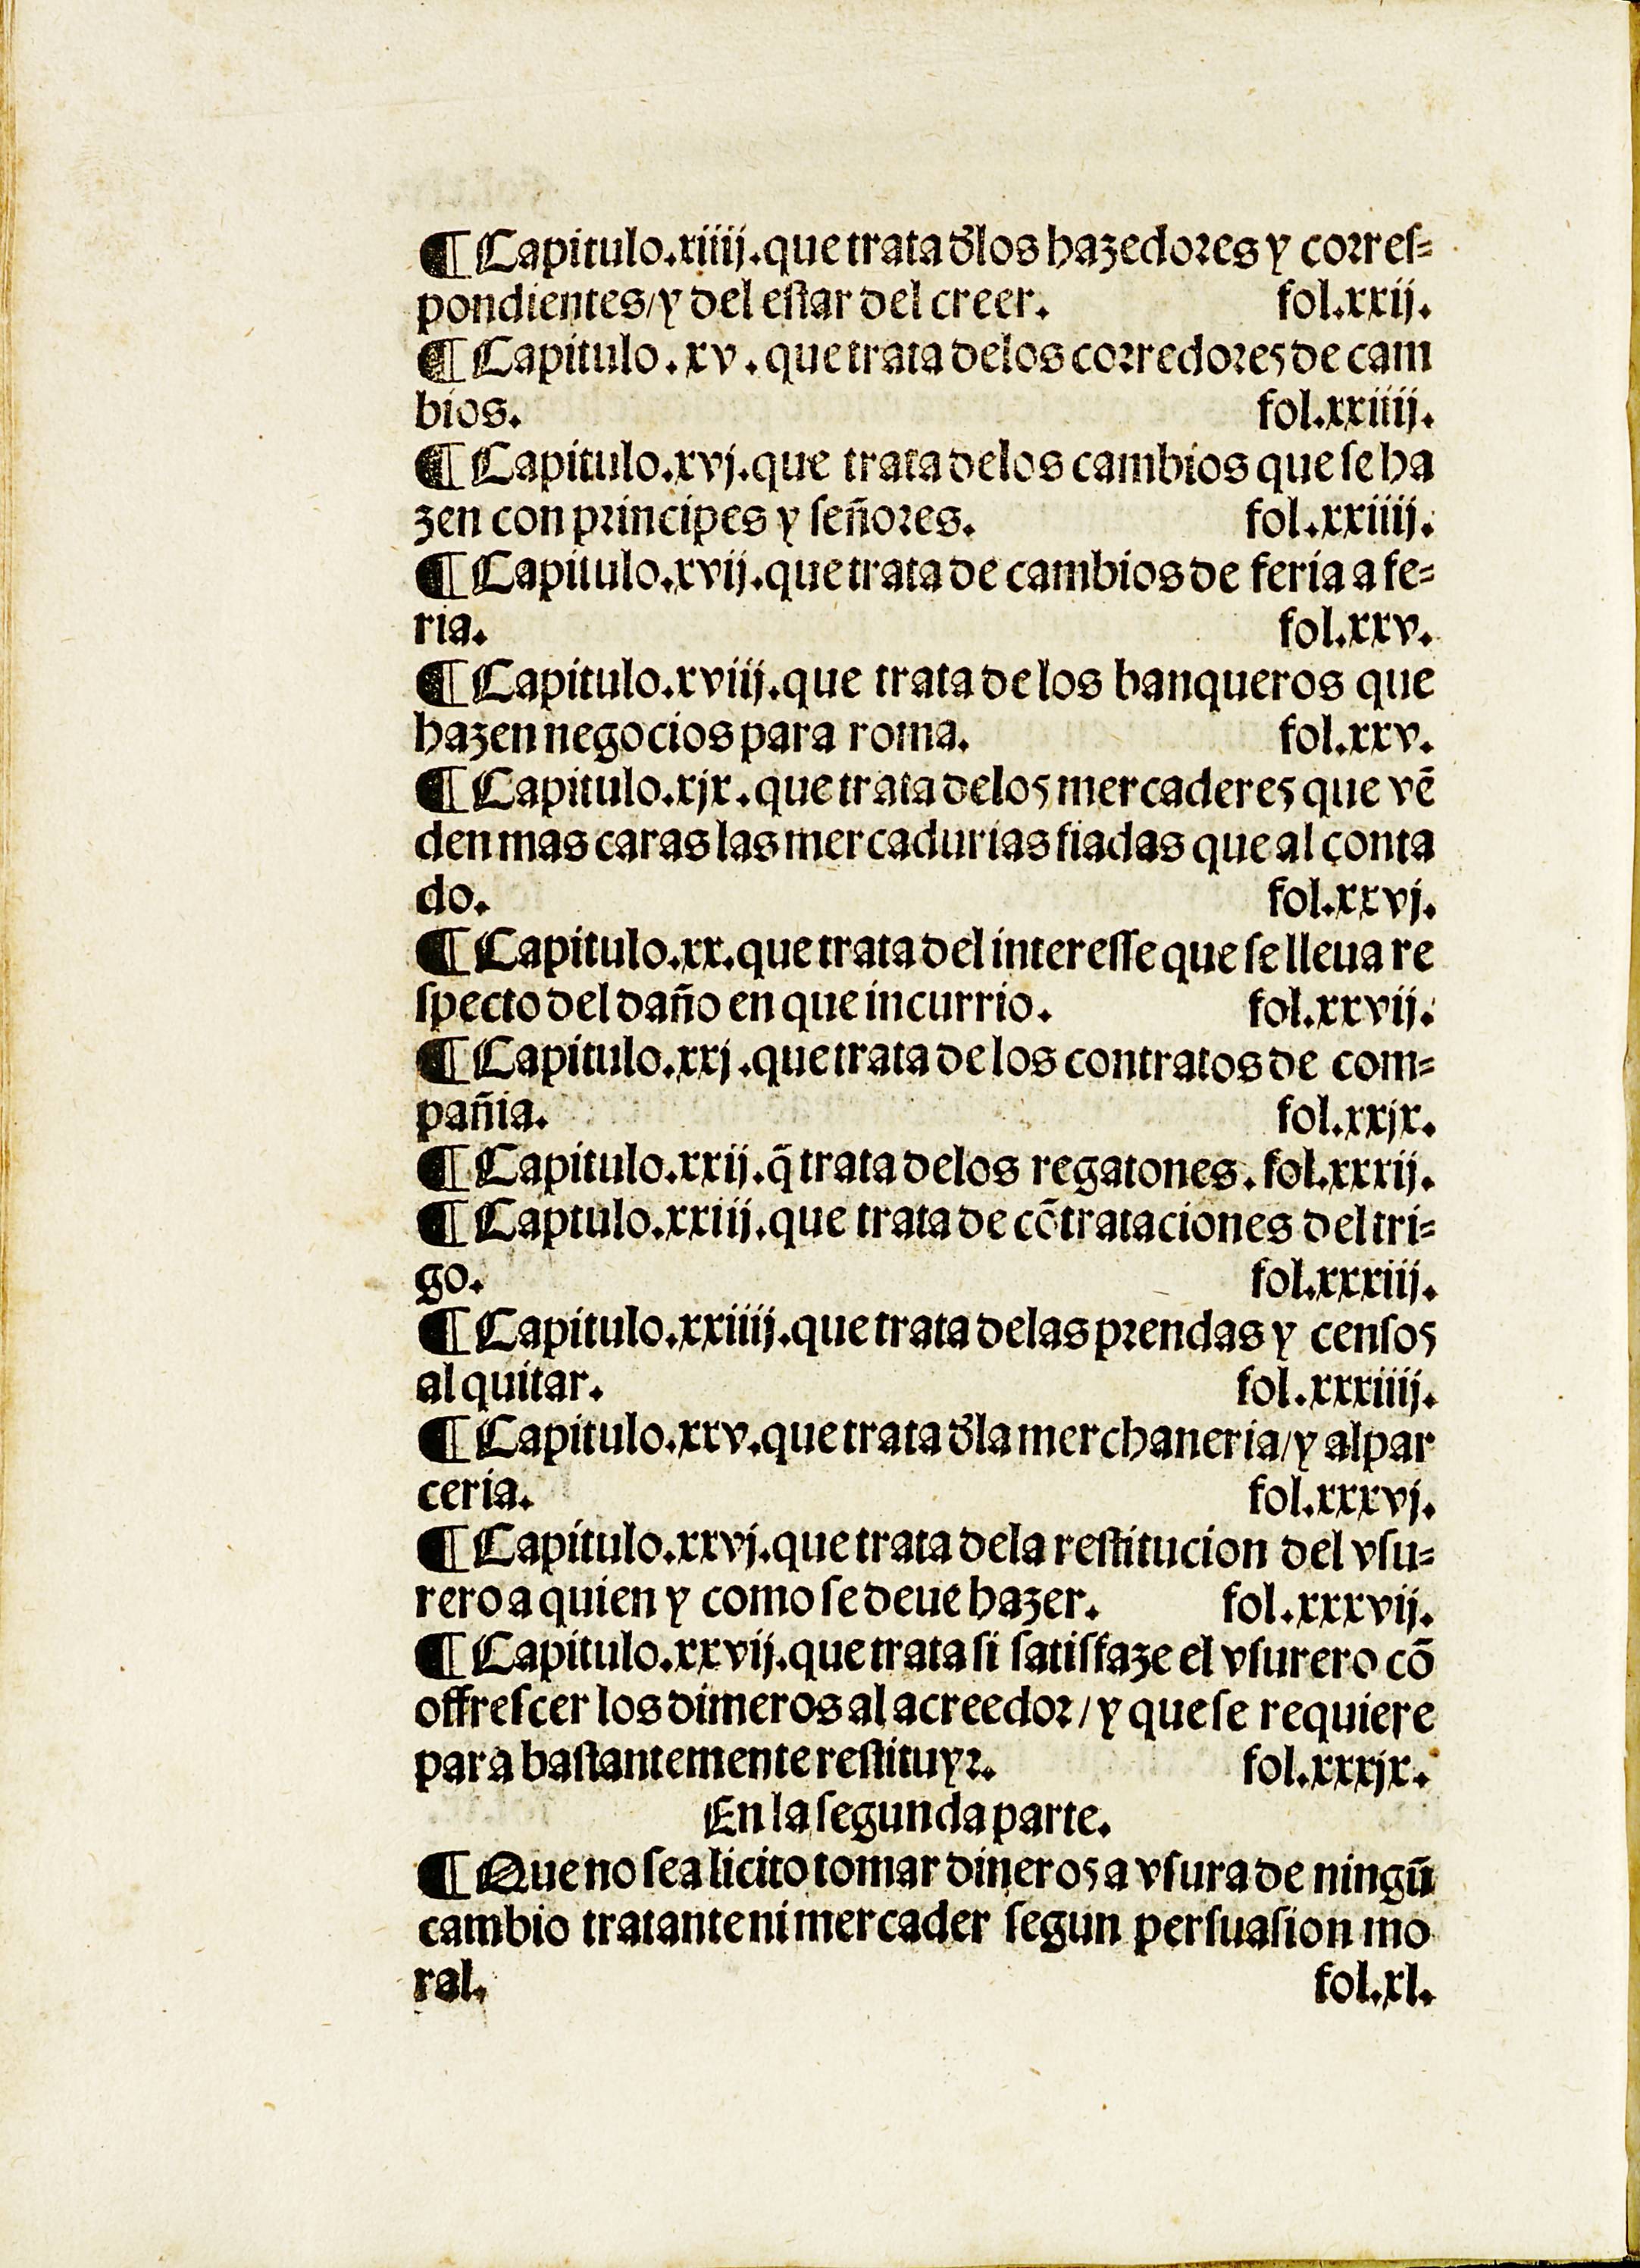 ¶ Capitulo.xiiij.que trata d̃los hazedores y correſ=
pondientes/y del eſtar del creer. fol.xxij.
¶ Capitulo.xv.que trata delos corredores de cam
bios. fol.xxiiij.
¶ Capitulo.xvj.que trata delos cambios que ſe ha
zen con principes y ſeñores. fol.xxiiij.
¶ Capitulo.xvij.que trata de cambios de feria a fe=
ria. fol.xxv.
¶ Capitulo.xviij.que trata de los banqueros que
hazen negocios para roma. fol.xxv.
¶ Capitulo.xjx.que trata delos mercaderes que vẽ
den mas caras las mercadurias fiadas que al conta
do. fol.xxvj.
¶ Capitulo.xx.que trata del intereſſe que ſe lleua re
ſpecto del daño en que incurrio. fol.xxvij.
¶ Capitulo.xxj.que trata de los contratos de com=
pañia. fol.xxjx.
¶ Capitulo.xxij.q̃ trata delos regatones. fol.xxxij.
¶ Captulo.xxiij.que trata de cõtrataciones del tri=
go. fol.xxxiij.
¶ Capitulo.xxiiij.que trata delas prendas y cenſos
al quitar. fol.xxxiiij.
¶ Capitulo.xxv.que trata d̃la merchaneria/y alpar
ceria. fol.xxxvj.
¶ Capitulo.xxvj.que trata dela reſtitucion del vſu=
rero a quien y como ſe deue hazer. fol.xxxvij.
¶ Capitulo.xxvij.que trata ſi ſatiſfaze el vſurero cõ
offreſcer los dimeros al acreedor/y que ſe requiere
para baſtantemente reſtituyr. fol.xxxjx.
En la ſegunda parte.
¶ Que no ſea licito tomar dineros a vſura de ningũ
cambio tratante ni mercader ſegun perſuaſion mo
ral. fol.xl.